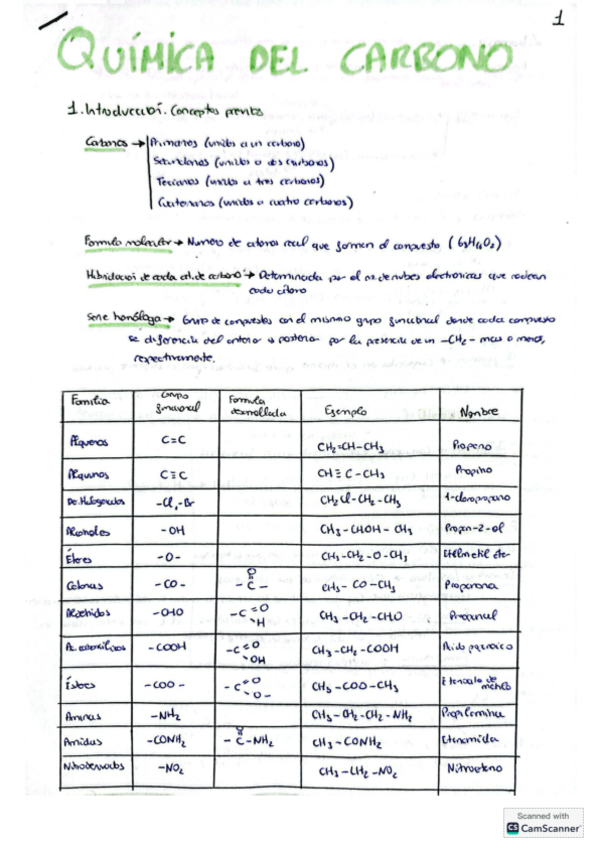 1
QUÍMICA DEL CARBONO
1. Introducción. Conceptos previos
Carbonos → Primarios (unidos a un carbono)
Secundarios (unidos a dos carbonos)
Terciarios (unidos a tres carbonos)
Cuaternarios (unidos a cuatro carbonos)
Formula molecular → Numero de atomos real que forman el compuesto
Hibridación de cada at. de carbono → Determinada por el nº de nubes electronicas que rodean
cada átomo
Serie homóloga → Grupo de compuestos con el mismo grupo funcional donde cada compuesto
se diferencia del anterior o posterior por la presencia de un -CH2- mas o menos,
respectivamente.
Familia Grupo funcional Formula desarrollada Ejemplo Nombre
Alquenos C=C CH2=CH-CH3 Propeno
Alquinos C≡C CH≡C-CH3 Propino
De. Halogenados -Cl, -Br CH2Cl-CH2-CH3 1-cloropropano
Alcoholes -OH CH3-CHOH-CH3 Propan-2-ol
Éteres -O- CH3-CH2-O-CH3 Etilmetil eter
Cetonas -CO- -C(=O)- CH3-CO-CH3 Propanona
Aldehidos -CHO -C=O -H CH3-CH2-CHO Propanal
Ac. carboxílicos -COOH -C=O -OH CH3-CH2-COOH Acido propanoico
Ésteres -COO- -C=O -O- CH3-COO-CH3 Etanoato de metilo
Aminas -NH2 CH3-CH2-CH2-NH2 Propilamina
Amidas -CONH2 -C(=O)-NH2 CH3-CONH2 Etanamida
Nitroderivados -NO2 CH3-CH2-NO2 Nitroetano
Scanned with
CS CamScanner